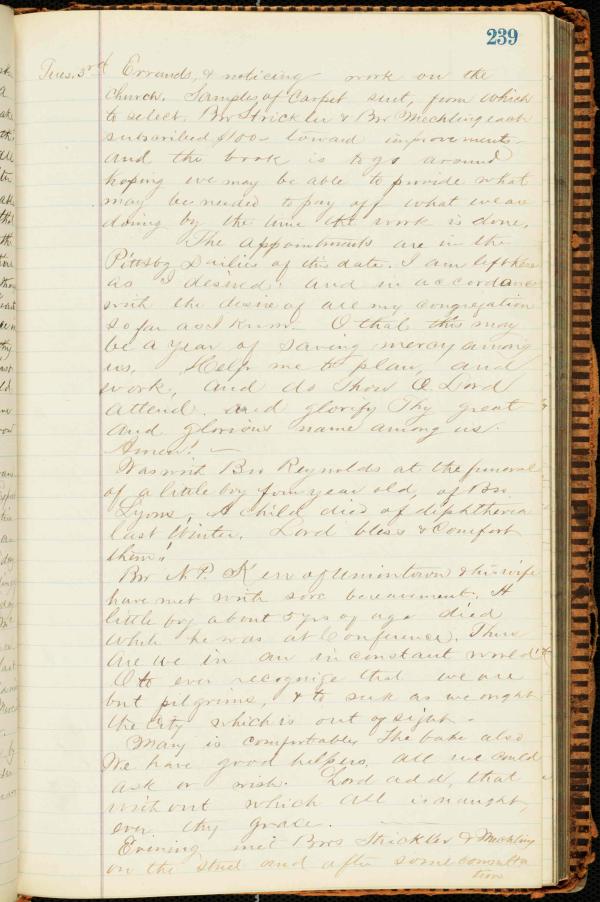 239
Tues. 3rd Errands, & noticing work on the
church. Samples of Carpet sent, from which
to select. Bro Strickler & Bro Mechling each
subscribed $100 - toward improvements -
and the book is to go around
hoping we may be able to provide what
may be needed to pay off what we are
doing by the time the work is done.
The appointments are in the
Pittsbg Dailies of this date. I am left here
as I desired; and in accordance
with the desire of all my congregation
so far as I know. O that this may
be a year of saving mercy among
us. Help me to plan, and
work, and do Thou O Lord
attend, and glorify Thy great
and glorious name among us.
Amen! -
Was with Bro Reynolds at the funeral
of a little boy four year old, of Bro
Lyons. A child died of diphtheria
last Winter. Lord bless & comfort
them!
Bro N. P. Kerr of Uniontown & his wife
have met with sore bereavement. A
little boy about 5 yrs of age died
while he was at Conference. Thus
are we in an inconstant world!
O to ever recognize that we are
but pilgrims, & to seek as we ought
the City which is out of sight -
Mary is comfortable, the babe also
We have good helpers, all we could
ask or wish. Lord add, that
without which all is naught,
even thy grace.
Evening met Bros Strickler & Mechling
on the street and after some consulta
tion